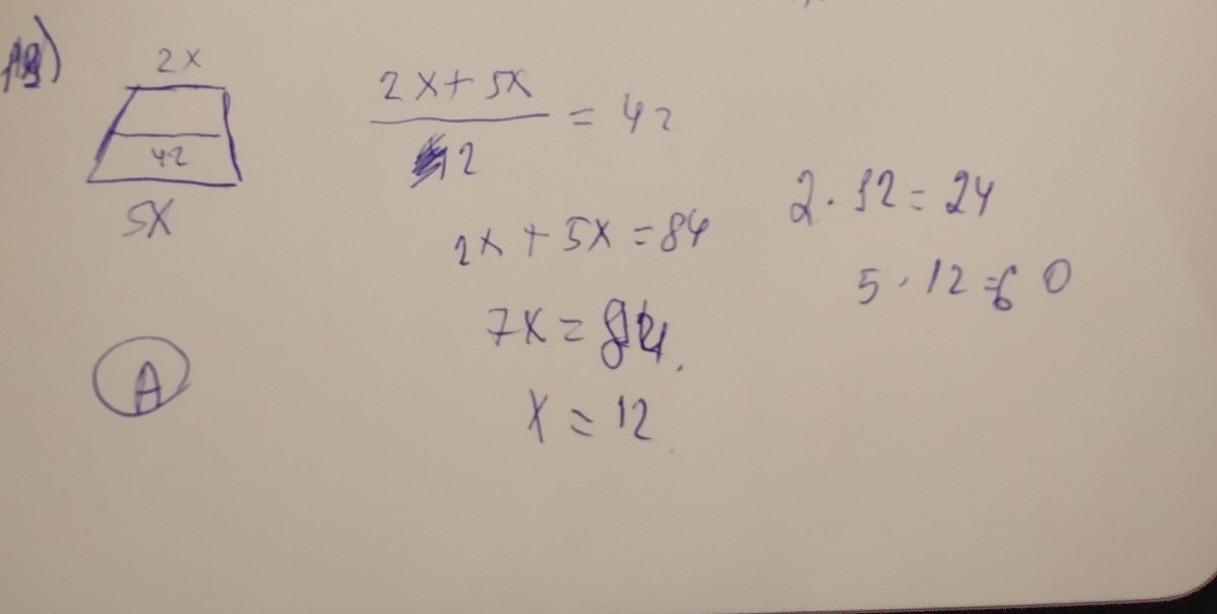 2x
42
5x
2x + 5x
2
= 42
2x + 5x = 84
7x = 84
x = 12
2 · 12 = 24
5 · 12 = 60
A